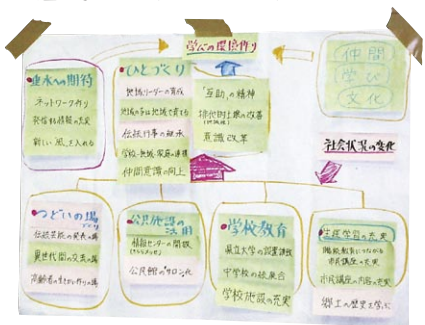 学びの環境作り
垂水への期待
ネットワーク作り
発信する情報の充実
新しい風を入れる
ひとづくり
地域リーダーの育成
地域の子は地域で育てる
伝統行事の継承
学校・地域・家庭の連携
仲間意識の向上
「互助」の精神
排他的土壌の改善
意識改革
仲間
学び
文化
社会状況の変化
つどいの場
づくり
伝統芸能の発表の場
異世代間の交流の場
高齢者の生きがい作りの場
公民施設の
活用
情報センターの開放
公民館のサロン化
学校教育
県立大学の設置誘致
中学校の統廃合
学校施設の充実
生涯学習の充実
市民講座の充実
市民講座の内容の充実
郷土の歴史文学に